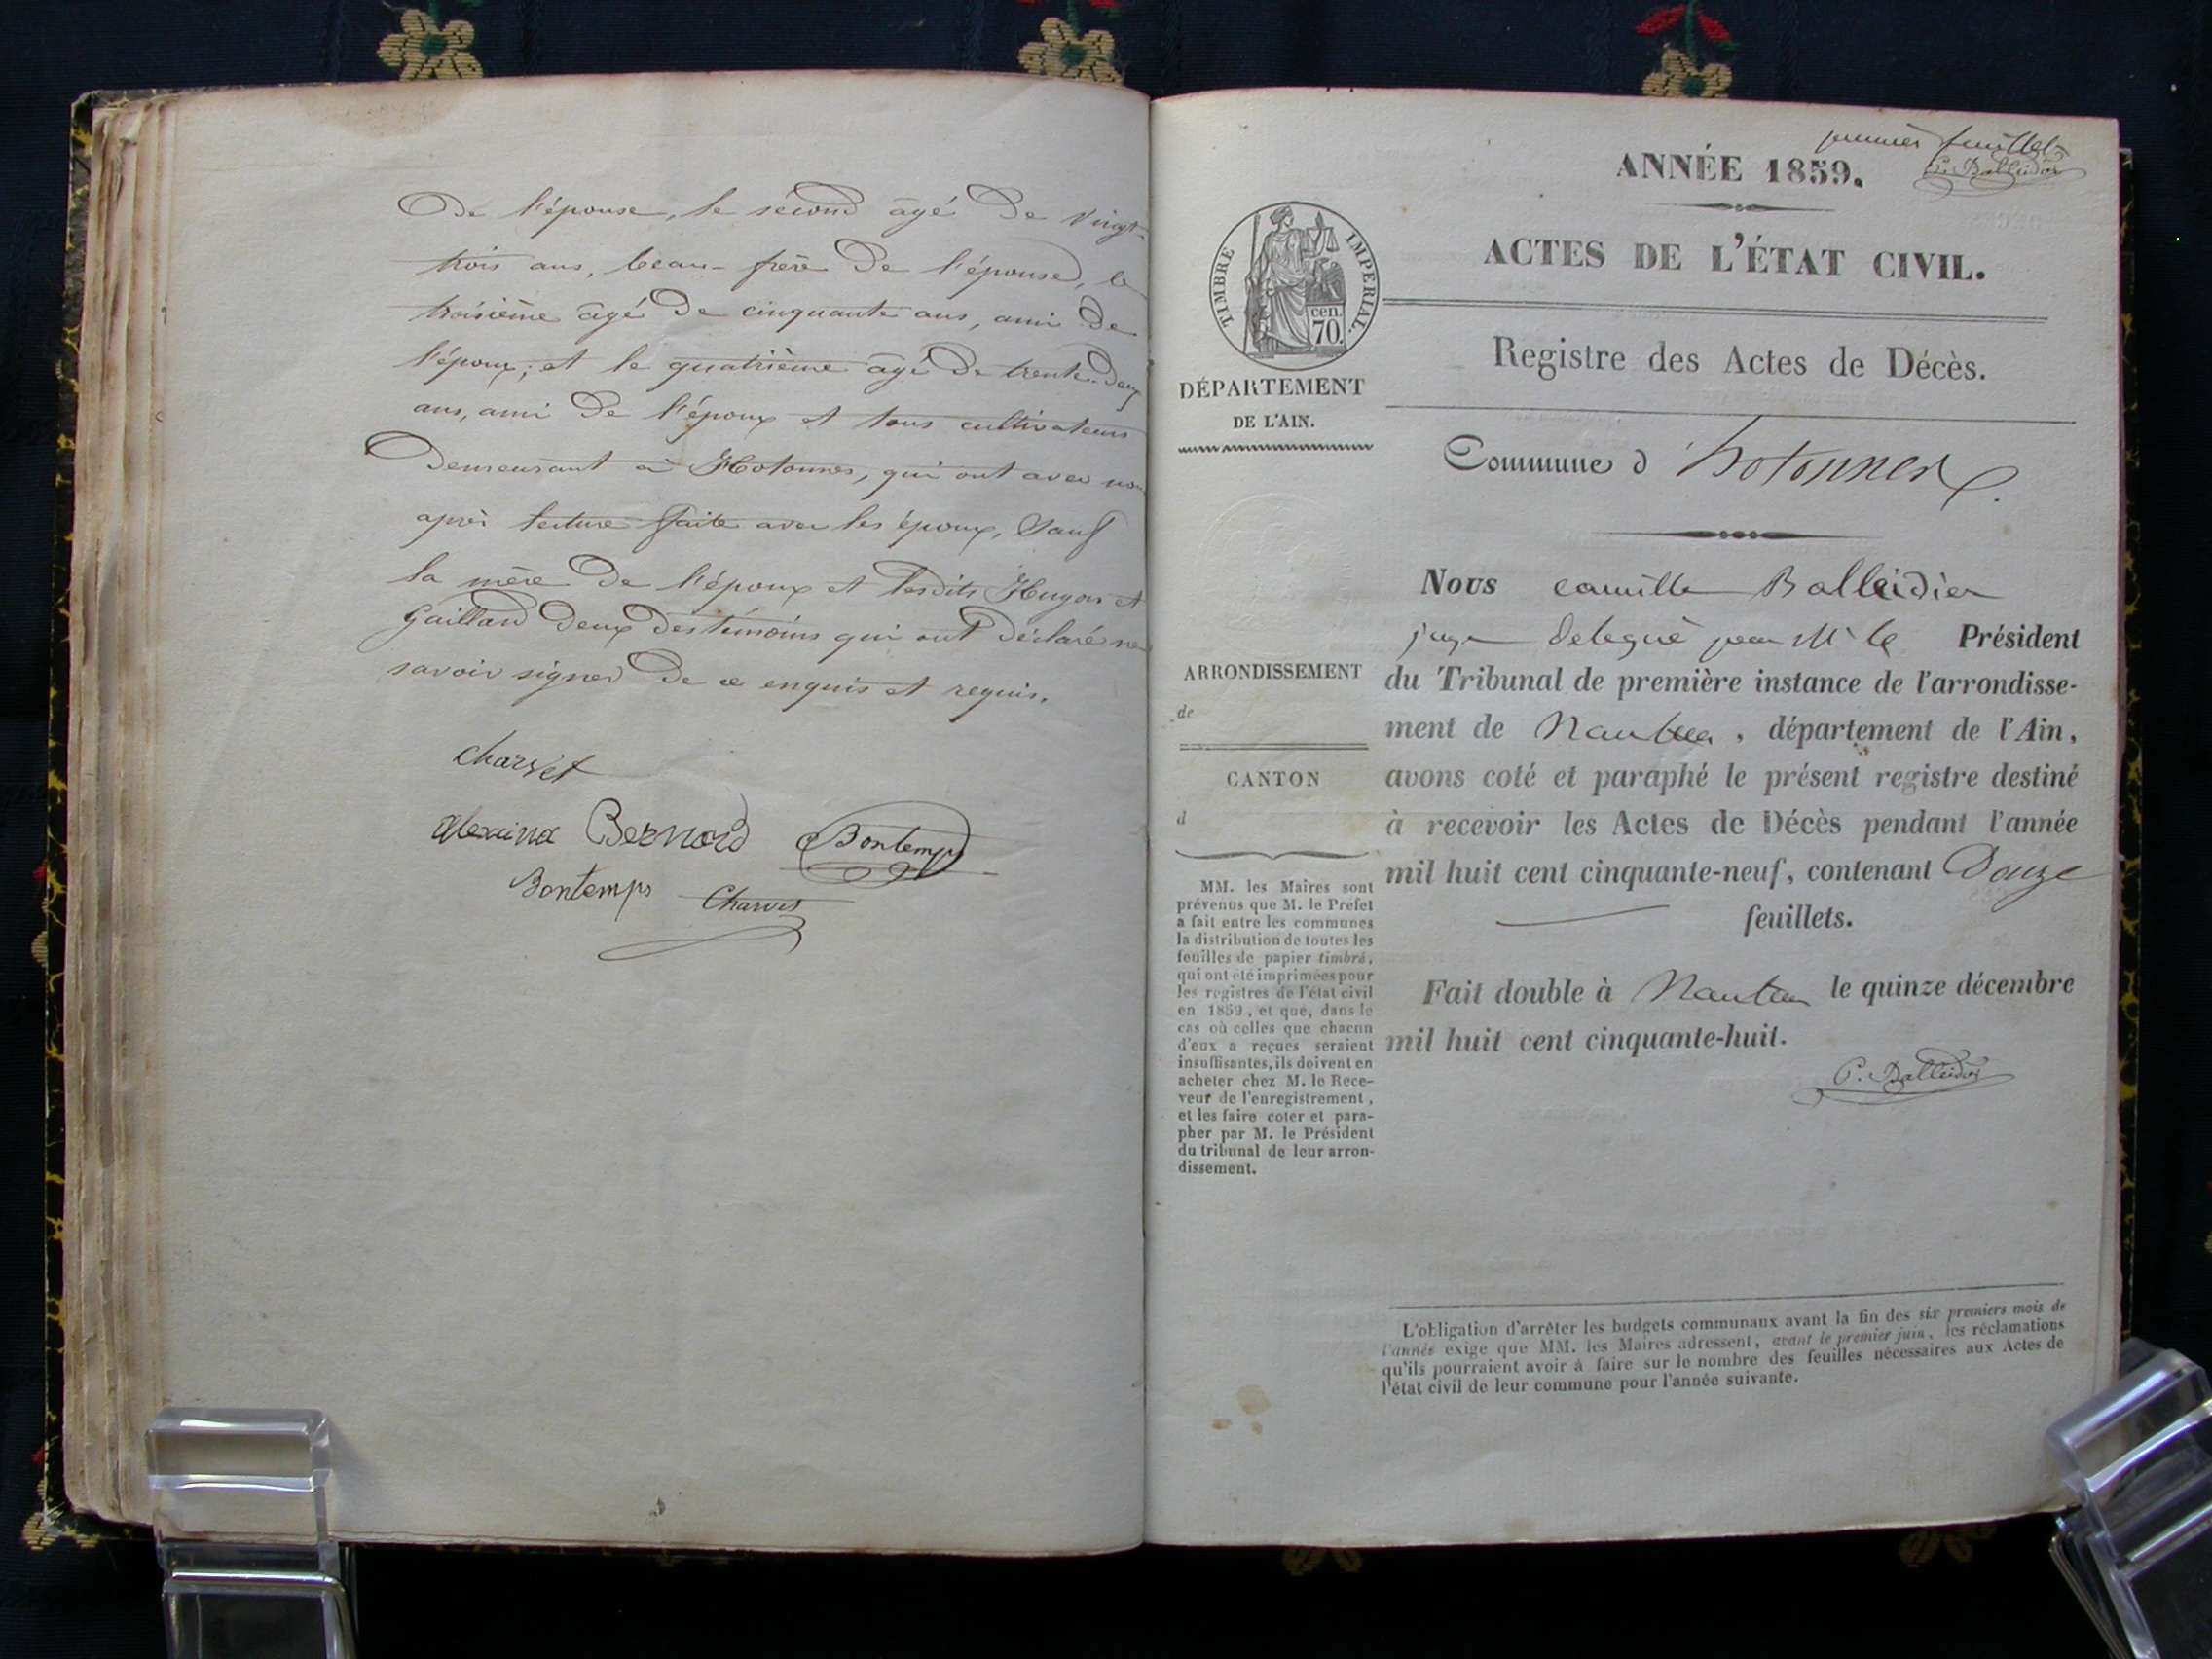 De l'épouse, le second âgé de vingt-
trois ans, beau-frère de l'épouse, le
troisième âgé de cinquante ans, ami de
l'époux; et le quatrième âgé de trente-deux
ans, ami de l'époux et tous cultivateurs
demeurant à Hotonnes, qui ont avec nous
après lecture faite avec les époux, sauf
la mère de l'époux et lesdits Hugon et
Gaillard deux des témoins qui ont déclaré ne
savoir signer de ce enquis et requis.
Charvet
Alexina Bernard Bontemps
Bontemps Charvet
premier feuillet
C. Balleidier
ANNÉE 1859.
ACTES DE L'ÉTAT CIVIL.
Registre des Actes de Décès.
TIMBRE IMPERIAL.
cen.
70.
DÉPARTEMENT
DE L'AIN.
Commune d'hotonnes
Nous camille Balleidier
juge délégué par Mr le Président
du Tribunal de première instance de l'arrondisse-
ment de Nantua, département de l'Ain,
avons coté et paraphé le présent registre destiné
à recevoir les Actes de Décès pendant l'année
mil huit cent cinquante-neuf, contenant Douze
feuillets.
Fait double à Nantua le quinze décembre
mil huit cent cinquante-huit.
C. Balleidier
ARRONDISSEMENT
de
CANTON
d
MM. les Maires sont
prévenus que M. le Préfet
a fait entre les communes
la distribution de toutes les
feuilles de papier timbré,
qui ont été imprimées pour
les registres de l'état civil
en 1859, et que, dans le
cas où celles que chacun
d'eux a reçues seraient
insuffisantes, ils doivent en
acheter chez M. le Rece-
veur de l'enregistrement,
et les faire coter et para-
pher par M. le Président
du tribunal de leur arron-
dissement.
L'obligation d'arrêter les budgets communaux avant la fin des six premiers mois de
l'année exige que MM. les Maires adressent, avant le premier juin, les réclamations
qu'ils pourraient avoir à faire sur le nombre des feuilles nécessaires aux Actes de
l'état civil de leur commune pour l'année suivante.